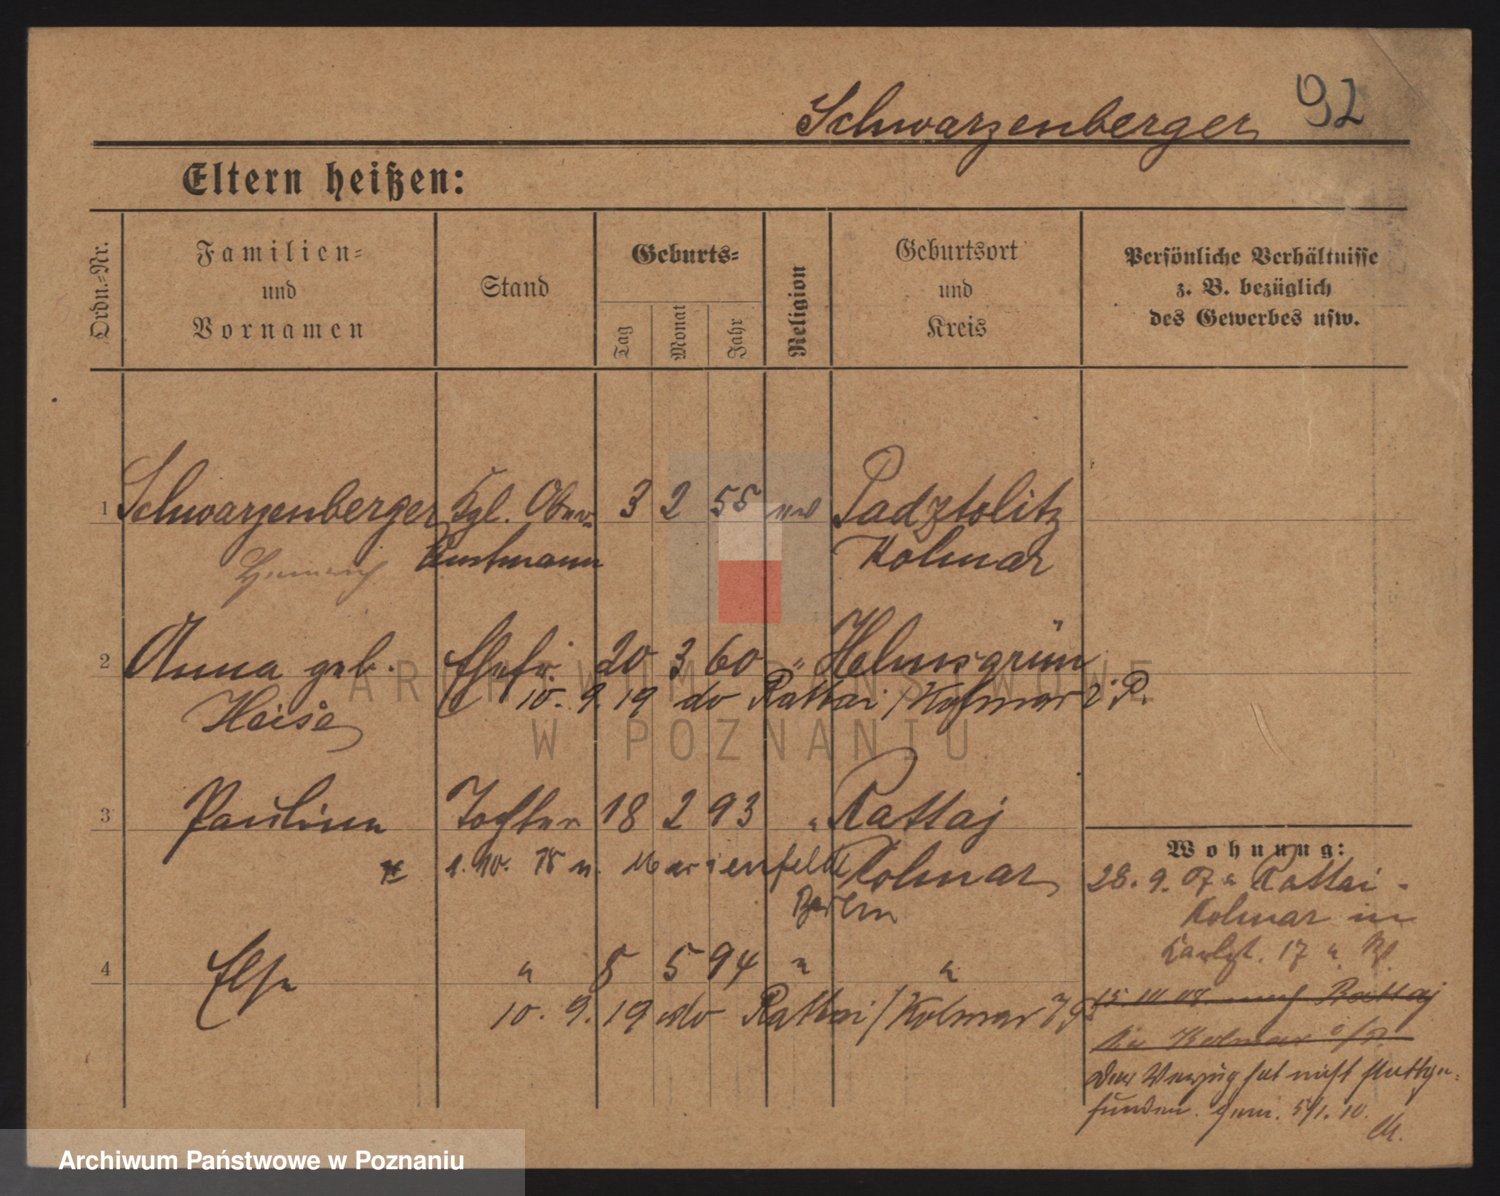 Schwarzenberger 92
Eltern heißen:
Ordn.-Nr.
Familien-
und
Vornamen
Stand
Geburts-
Tag
Monat
Jahr
Religion
Geburtsort
und
Kreis
Persönliche Verhältnisse
z. B. bezüglich
des Gewerbes usw.
1 Schwarzenberger Kgl. Ober- 3 2 55 Padztolitz
Heinrich Amtmann Kolmar
2 Anna geb. Ehefr. 20 3 60 " Helmsgrün
Heise 10. 9. 19 do Rattai / Kolmar i. P.
3 Pauline Tochter 18 2 93 " Rattaj
1. 10. 18 n. Marienfelde Kolmar
Berlin
4 Else " 8 5 94 " "
10. 9. 19 do Rattai / Kolmar
Wohnung:
28. 9. 07 Rattai -
Kolmar in
17
15. 10 08 nach Rattaj
Kr Kolmar i/P.
Der Verzug hat nicht stattge-
funden. 5/1. 10.
ARCHIWUM PAŃSTWOWE
W POZNANIU
Archiwum Państwowe w Poznaniu